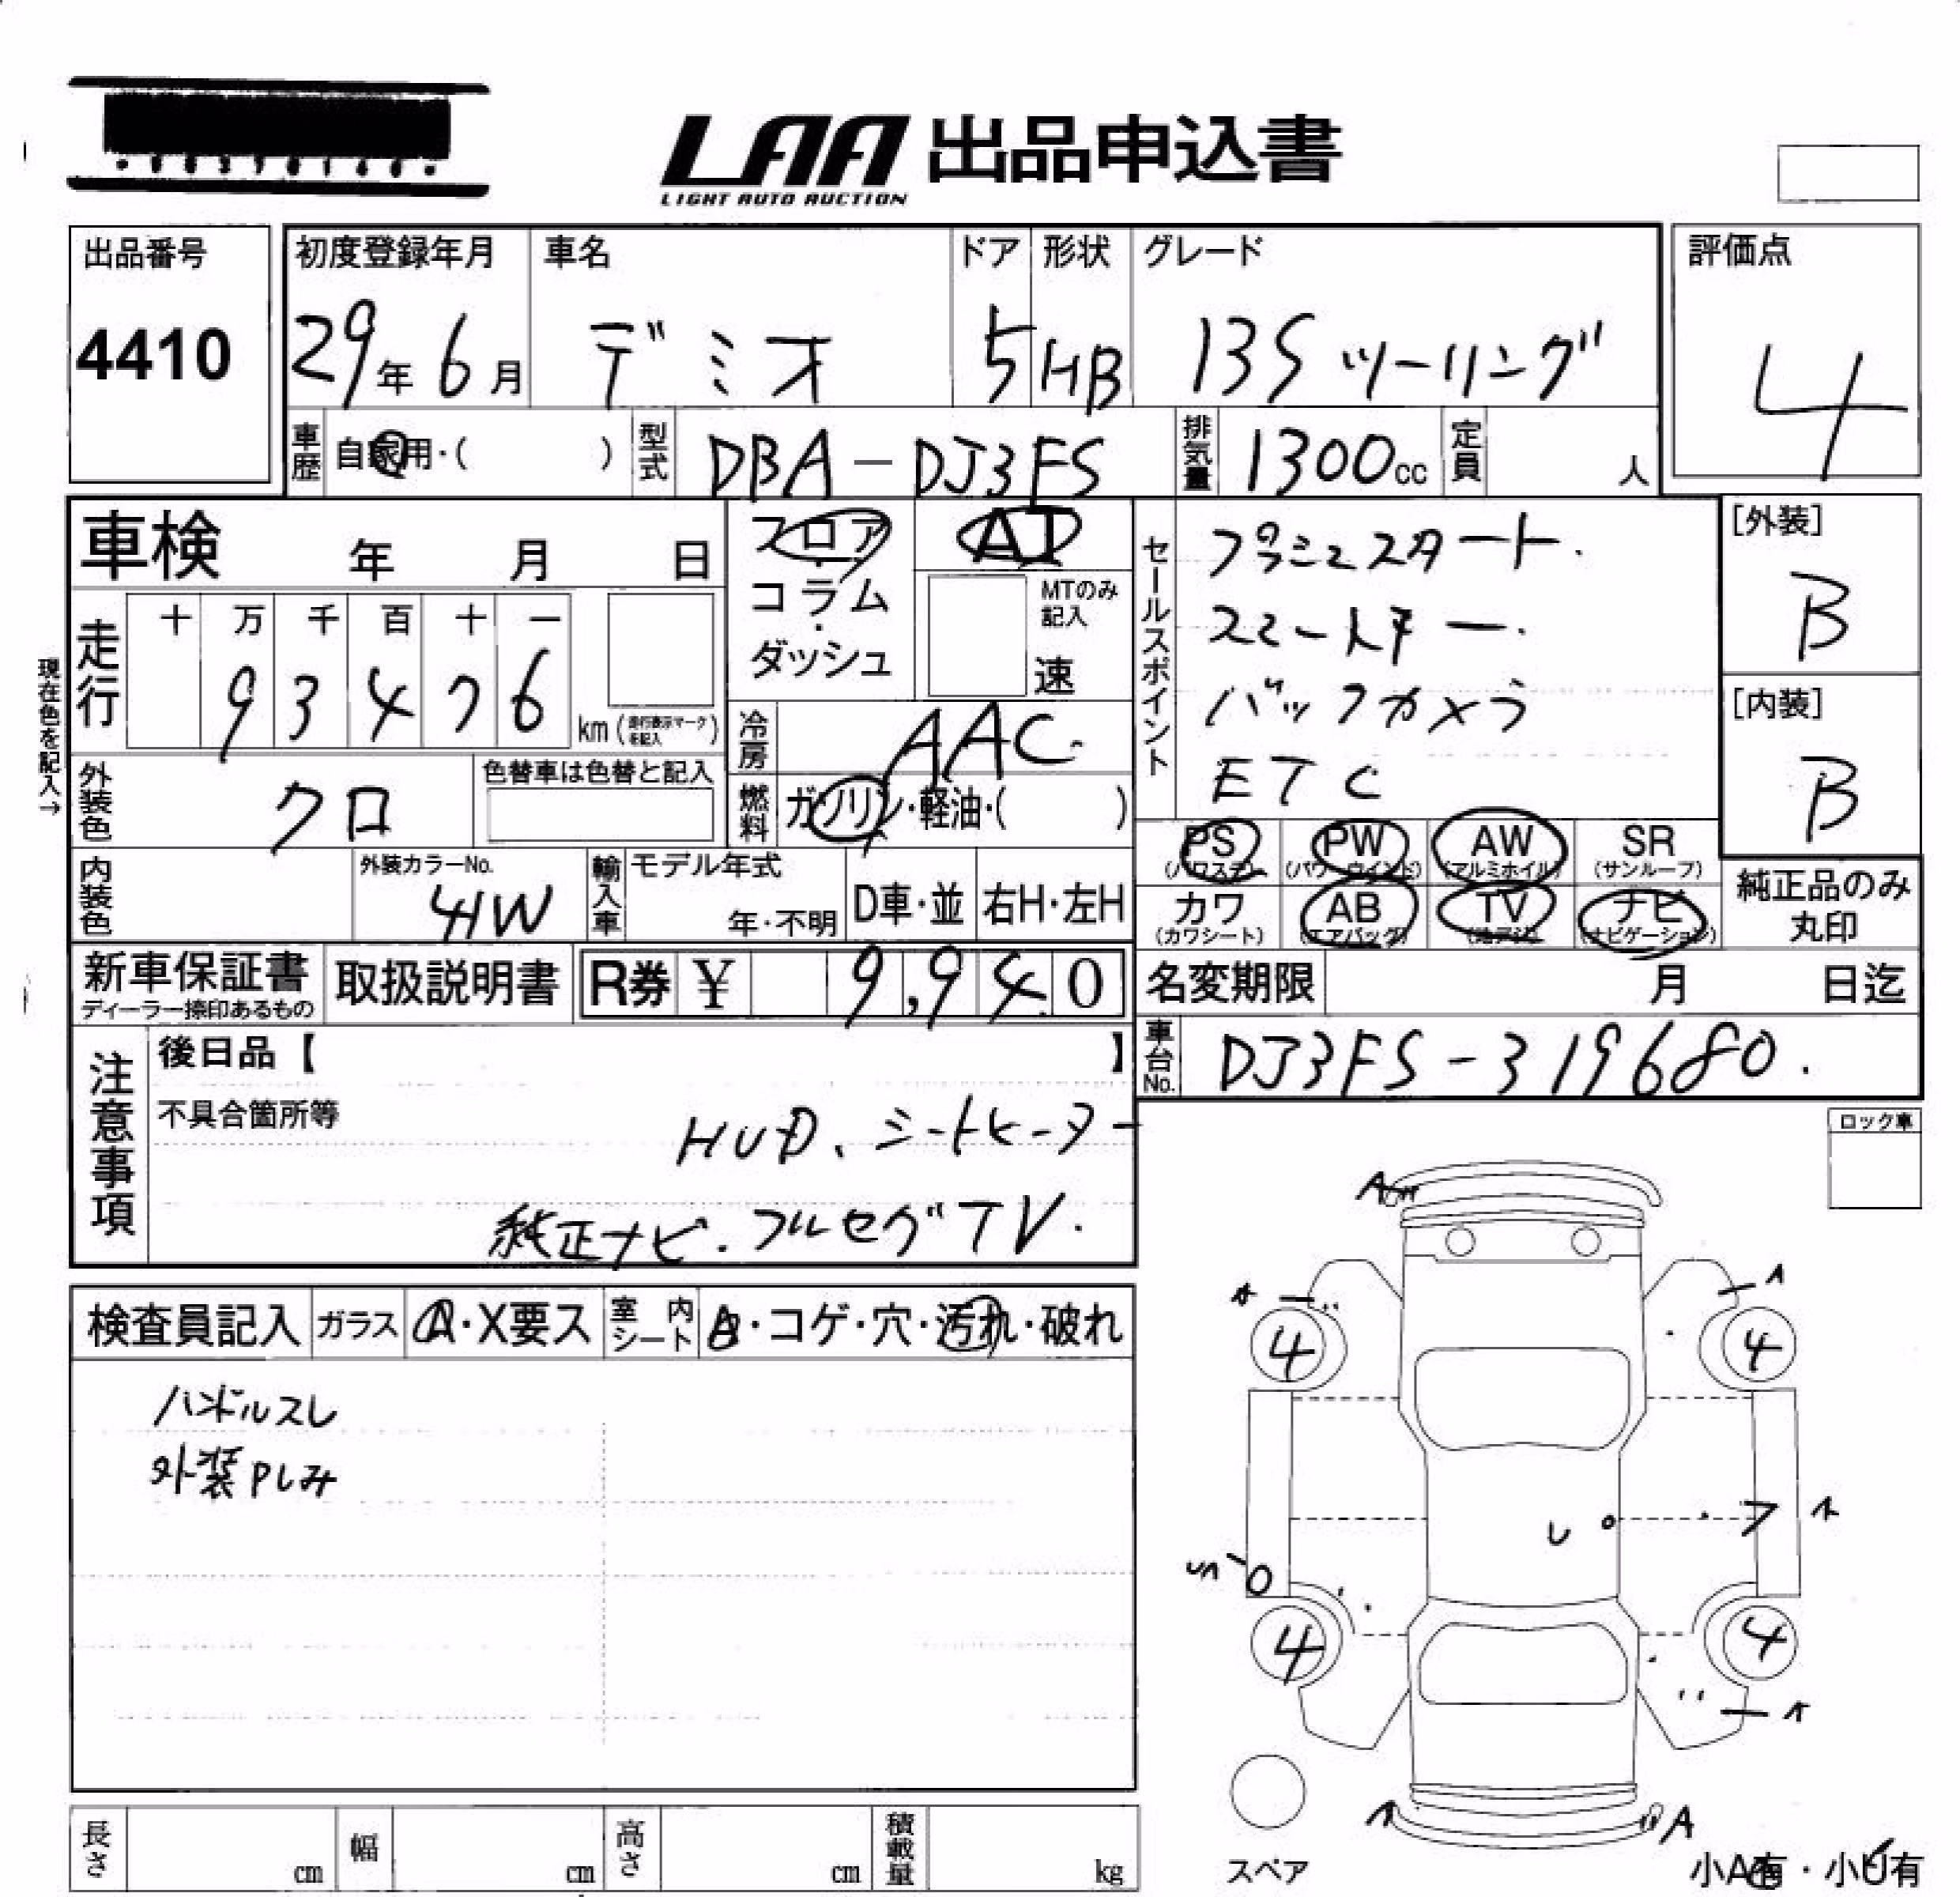 LAA 出品申込書
LIGHT AUTO AUCTION
出品番号
4410
初度登録年月
29年6月
車名
デミオ
ドア
5
形状
HB
グレード
13Sツーリング
評価点
4
車歴
自家用・( )
型式
DBA-DJ3FS
排気量
1300cc
定員
人
車検 年 月 日
フロア
・
コラム
・
ダッシュ
AT
MTのみ
記入
速
セールスポイント
プッシュスタート.
スマートキー.
バックカメラ
ETC
[外装]
B
[内装]
B
現在色を記入→
走行
十 万 千 百 十 一
9 3 4 7 6
km(走行表示マークを記入)
冷房
AAC.
外装色
クロ
色替車は色替と記入
燃料
ガソリン・軽油・( )
PS PW AW SR
(パワステ) (パワーウインド) (アルミホイル) (サンルーフ)
カワ AB TV ナビ
(カワシート) (エアバッグ) (地デジ) (ナビゲーション)
純正品のみ
丸印
内装色
外装カラーNo.
41W
輸入車
モデル年式
年・不明
D車・並
右H・左H
新車保証書
ディーラー捺印あるもの
取扱説明書
R券 ¥ 9,940
名変期限 月 日迄
車台No.
DJ3FS-319680.
注意事項
後日品【 】
不具合箇所等
HUD、シートヒーター
純正ナビ.フルセグTV.
ロック車
検査員記入
ガラス
A・X要ス
室内
シート
・コゲ・穴・汚れ・破れ
ハンドルスレ
外装Pしみ
A
A
4
4
4
4
A
スペア
小A有・小U有
長さ cm
幅 cm
高さ cm
積載量 kg